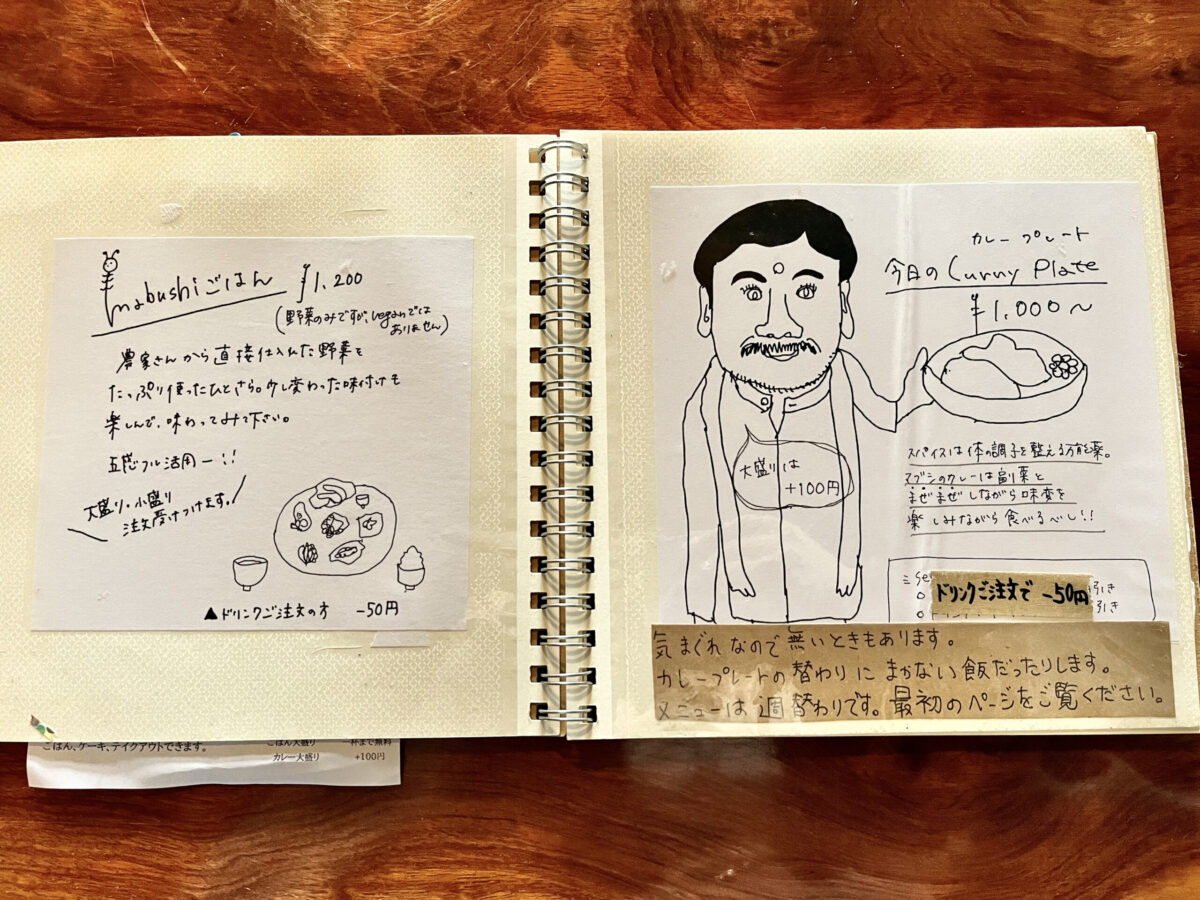 mabushiごはん ¥1,200
(野菜のみですが、veganでは
ありません)
農家さんから直接仕入れた野菜を
たっぷり使ったひとさら。少し変わった味付けも
楽しんで、味わってみて下さい。
五感フル活用ー!!
大盛り・小盛り
注文受けつけます。
▲ドリンクご注文の方 -50円
ごはん、ケーキ、テイクアウトできます。
ごはん大盛り 一杯まで無料
カレー大盛り +100円
カレープレート
今日のCurry Plate
¥1,000〜
大盛りは
+100円
スパイスは体の調子を整える万能薬。
マブシのカレーは副菜と
まぜまぜしながら味変を
楽しみながら食べるべし!!
ドリンクご注文で -50円
引き
引き
気まぐれなので無いときもあります。
カレープレートの替わりにまかない飯だったりします。
メニューは週替わりです。最初のページをご覧ください。